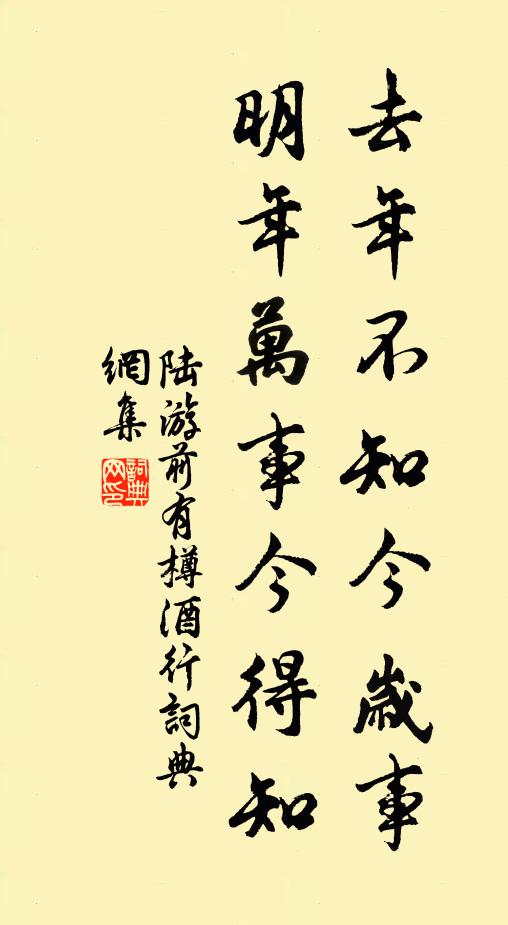 去年不知今歲事
明年萬事今得知
陸游前有樽酒行詞典
網集
詞典
网印